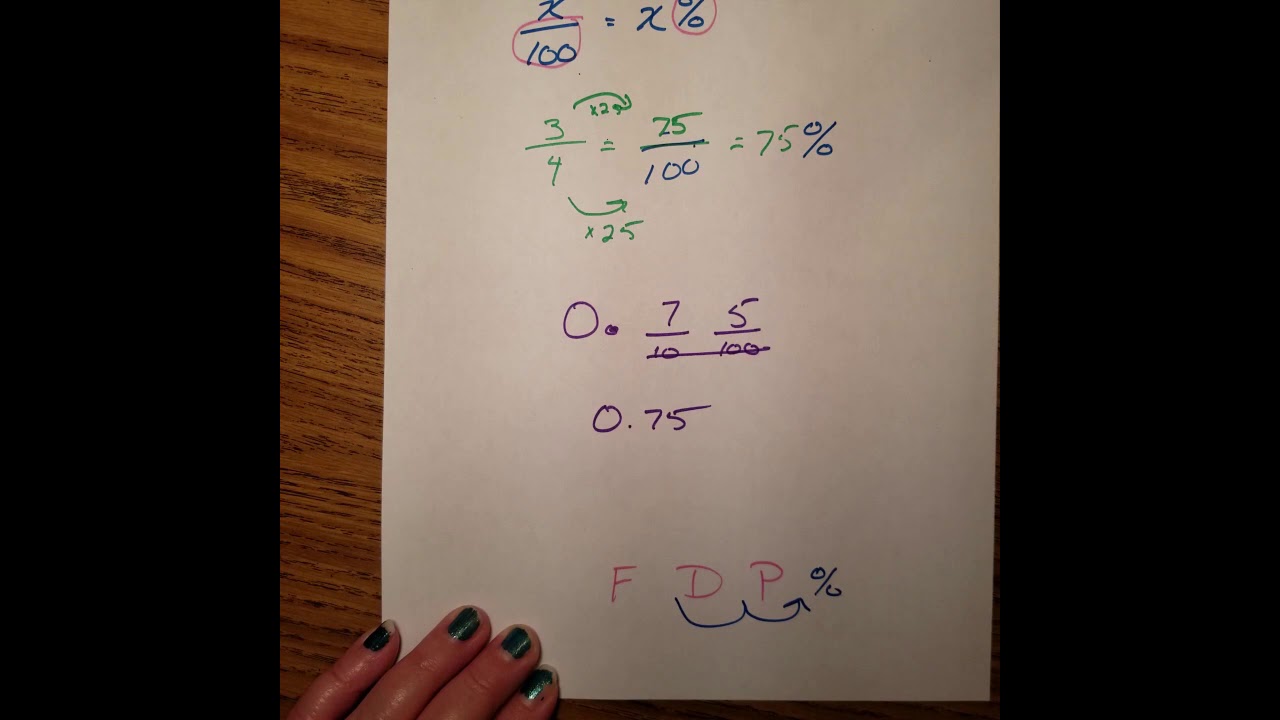 x/100 = x%
×25
3/4 = 75/100 = 75%
×25
0. 7/10 5/100
0.75
F D P %